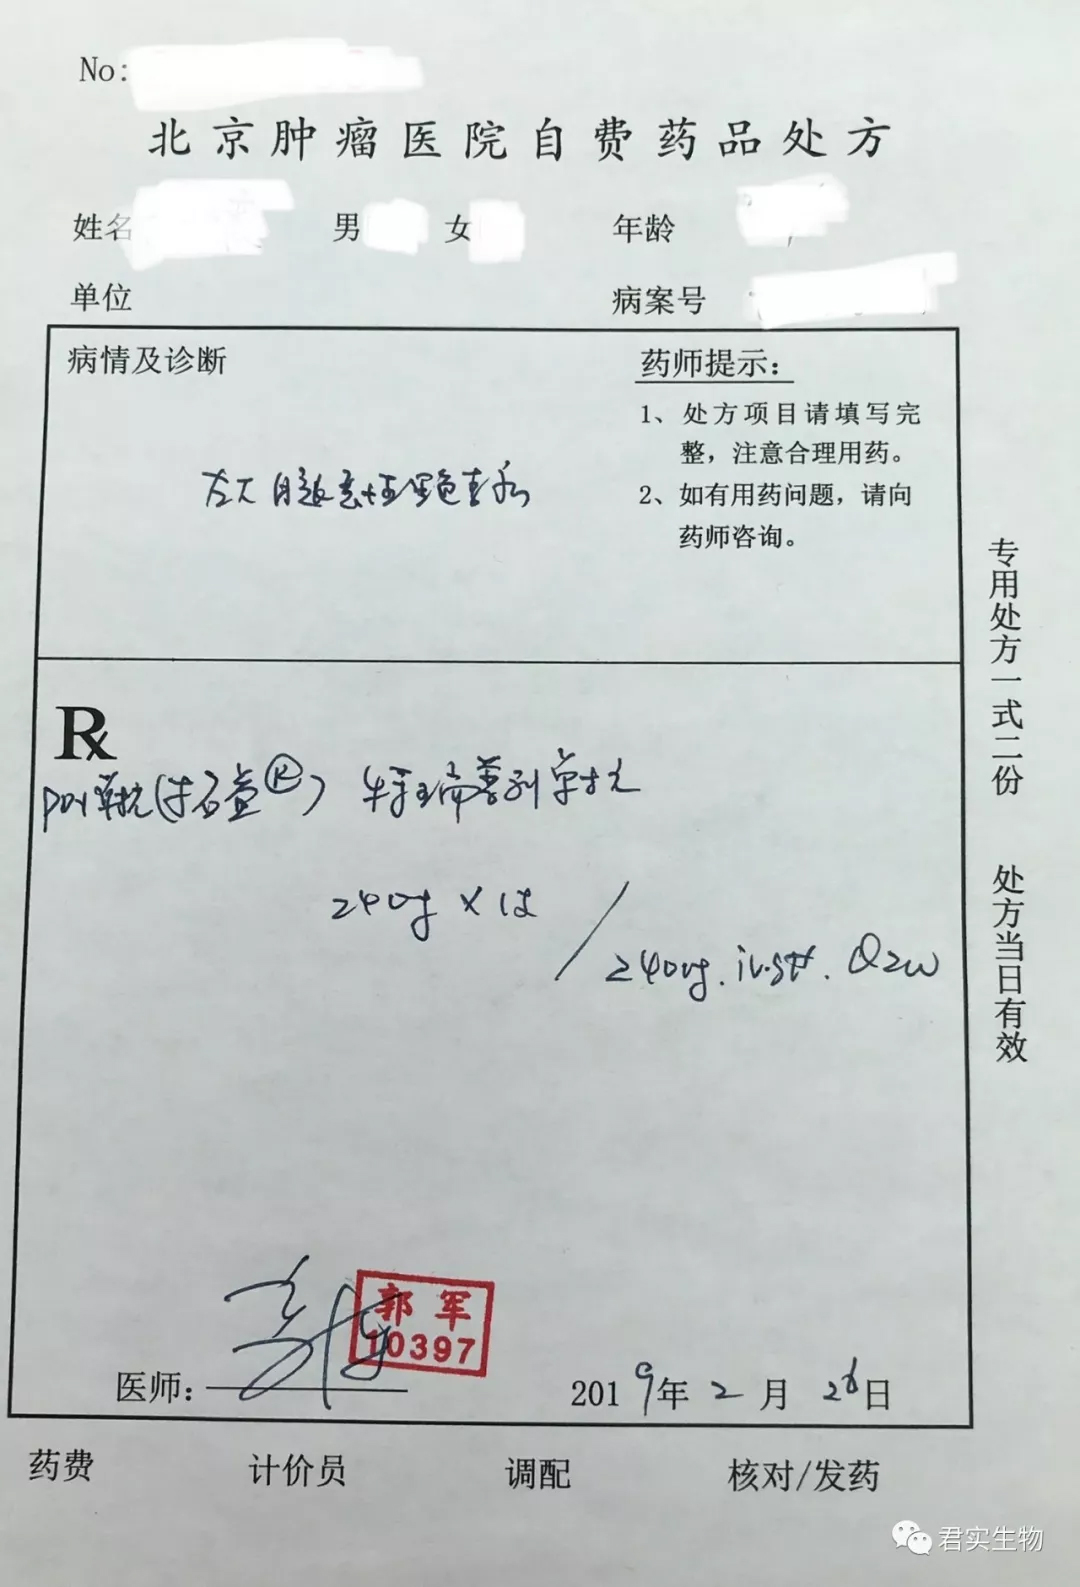 No:
北京肿瘤医院自费药品处方
姓名 男 女 年龄
单位 病案号
病情及诊断
药师提示：
1、处方项目请填写完
整，注意合理用药。
2、如有用药问题，请向
药师咨询。
左大腿恶性黑色素瘤
Rx
PD1单抗(拓益®) 特瑞普利单抗
240mg × 1支
/ 240mg. iv.gtt. Q2w
郭军
10397
医师：
2019年2月26日
药费 计价员 调配 核对/发药
专用处方一式二份 处方当日有效
君实生物